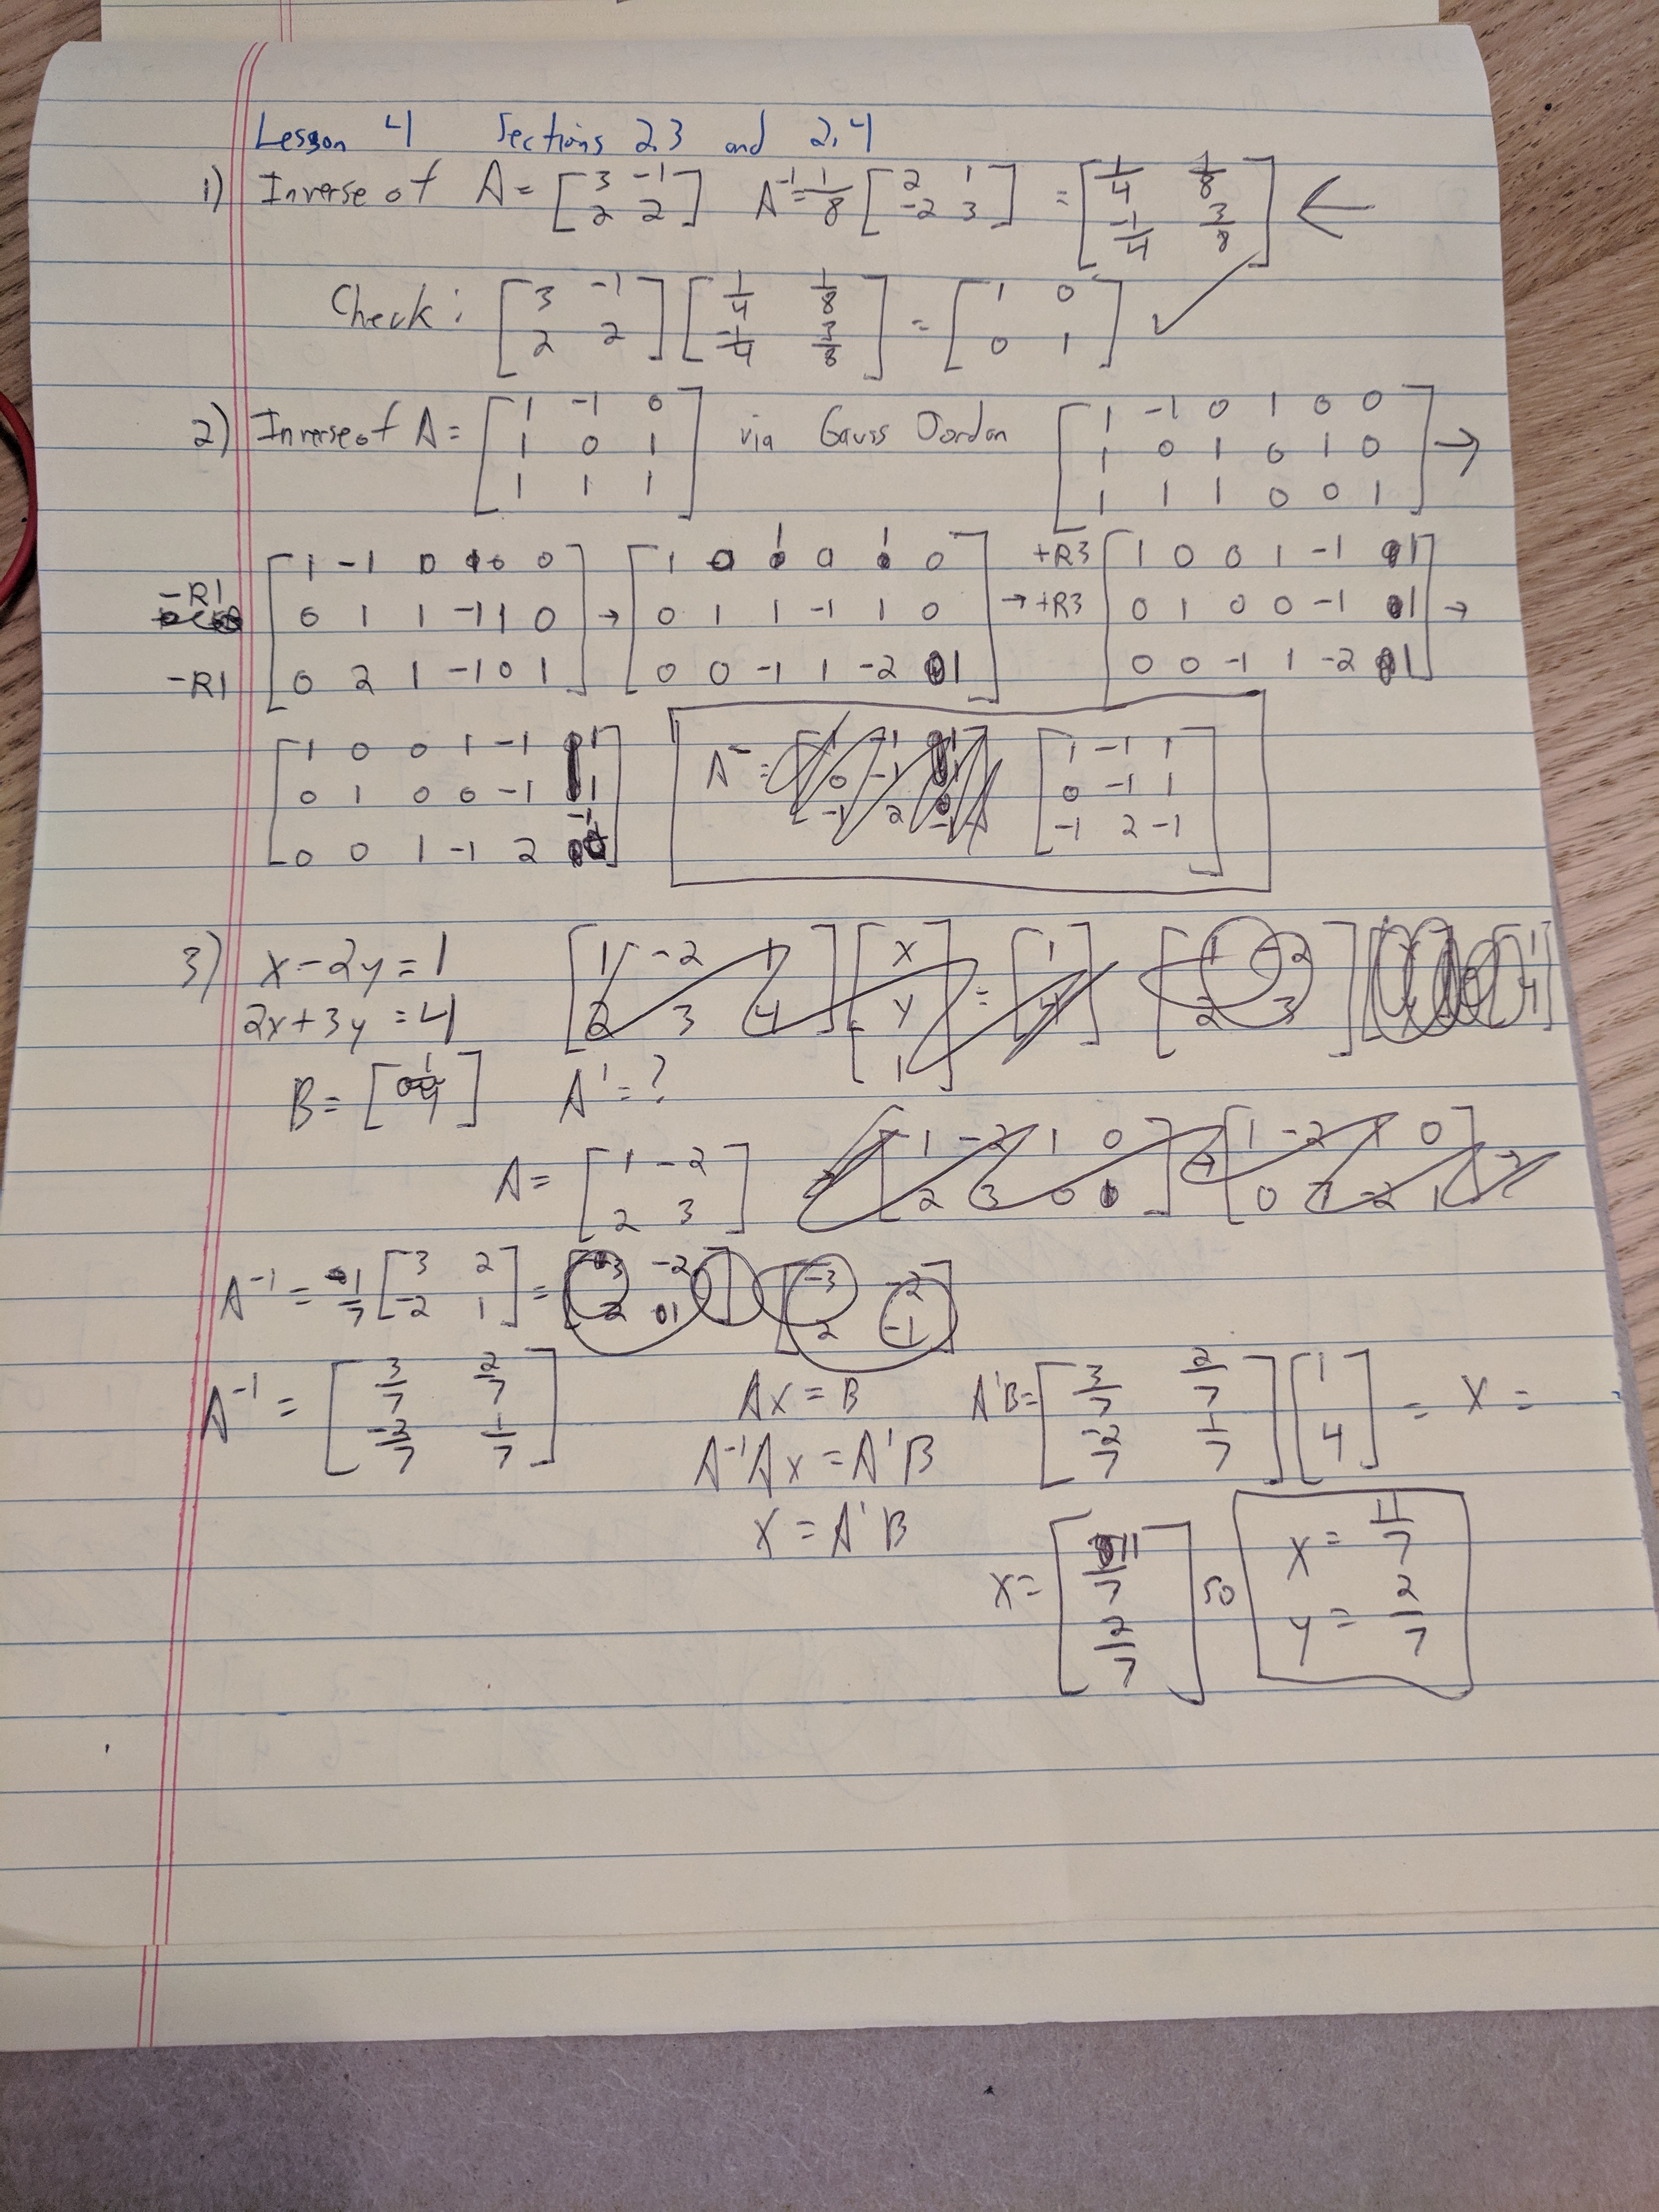 Lesson 4 Sections 2.3 and 2.4
1) Inverse of A = [3 -1; 2 2] A^-1 = 1/8 [2 1; -2 3] = [1/4 1/8; -1/4 3/8] ←
Check: [3 -1; 2 2] [1/4 1/8; -1/4 3/8] = [1 0; 0 1] ✓
2) Inverse of A = [1 -1 0; 1 0 1; 1 1 1] via Gauss Jordan [1 -1 0 1 0 0; 1 0 1 0 1 0; 1 1 1 0 0 1] →
-R1 -R1 [1 -1 0 1 0 0; 0 1 1 -1 1 0; 0 2 1 -1 0 1] → [1 0 1 0 1 0; 0 1 1 -1 1 0; 0 0 -1 1 -2 1] → +R3 +R3 [1 0 0 1 -1 1; 0 1 0 0 -1 1; 0 0 -1 1 -2 1] →
[1 0 0 1 -1 1; 0 1 0 0 -1 1; 0 0 1 -1 2 -1] A^- = [1 -1 1; 0 -1 1; -1 2 -1]
3) x - 2y = 1 [1 -2 1; 2 3 4] [x; y; 1] = [1; 4] [1 -2; 2 3]
2x + 3y = 4
B = [1; 4] A^1 = ?
A = [1 -2; 2 3] → [1 -2 1 0; 2 3 0 1] → [1 -2 1 0; 0 7 -2 1] →
A^-1 = 1/7 [3 2; -2 1] = [3 -2; -2 1] [-3 -2; 2 -1]
A^-1 = [3/7 2/7; -2/7 1/7] Ax = B A^1B = [3/7 2/7; -2/7 1/7] [1; 4] = X =
A^-1Ax = A^1B
X = A^1B
X = [11/7; 2/7] so x = 11/7
y = 2/7